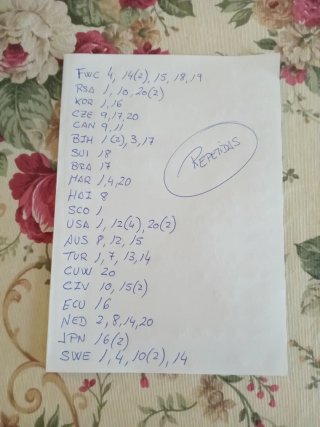 FWC 4, 14(2), 15, 18, 19
RSA 1, 10, 20(2)
KOR 1, 16
CZE 9, 17, 20
CAN 9, 11
BIH 1(2), 3, 17
SUI 18
BRA 17
MAR 1, 4, 20
HAI 8
SCO 1
USA 1, 12(4), 20(2)
AUS 8, 12, 15
TUR 1, 7, 13, 14
CUW 20
CIV 10, 15(2)
ECU 16
NED 2, 8, 14, 20
JPN 16(2)
SWE 1, 4, 10(2), 14
REPETIDAS